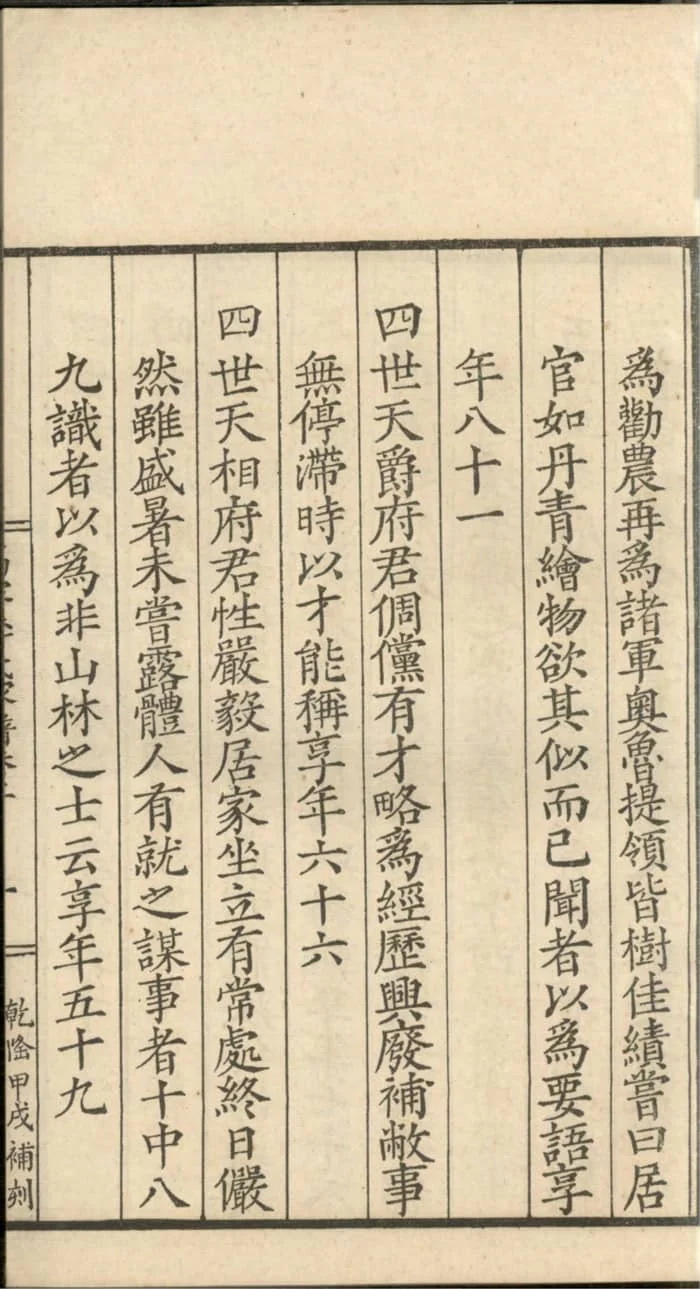 為勸農再為諸軍奧魯提領皆樹佳績嘗曰居
官如丹青繪物欲其似而已聞者以為要語享
年八十一
四世天爵府君倜儻有才略為經歷興廢補敝事
無停滯時以才能稱享年六十六
四世天相府君性嚴毅居家坐立有常處終日儼
然雖盛暑未嘗露體人有就之謀事者十中八
九識者以為非山林之士云享年五十九
乾隆甲戌補刻